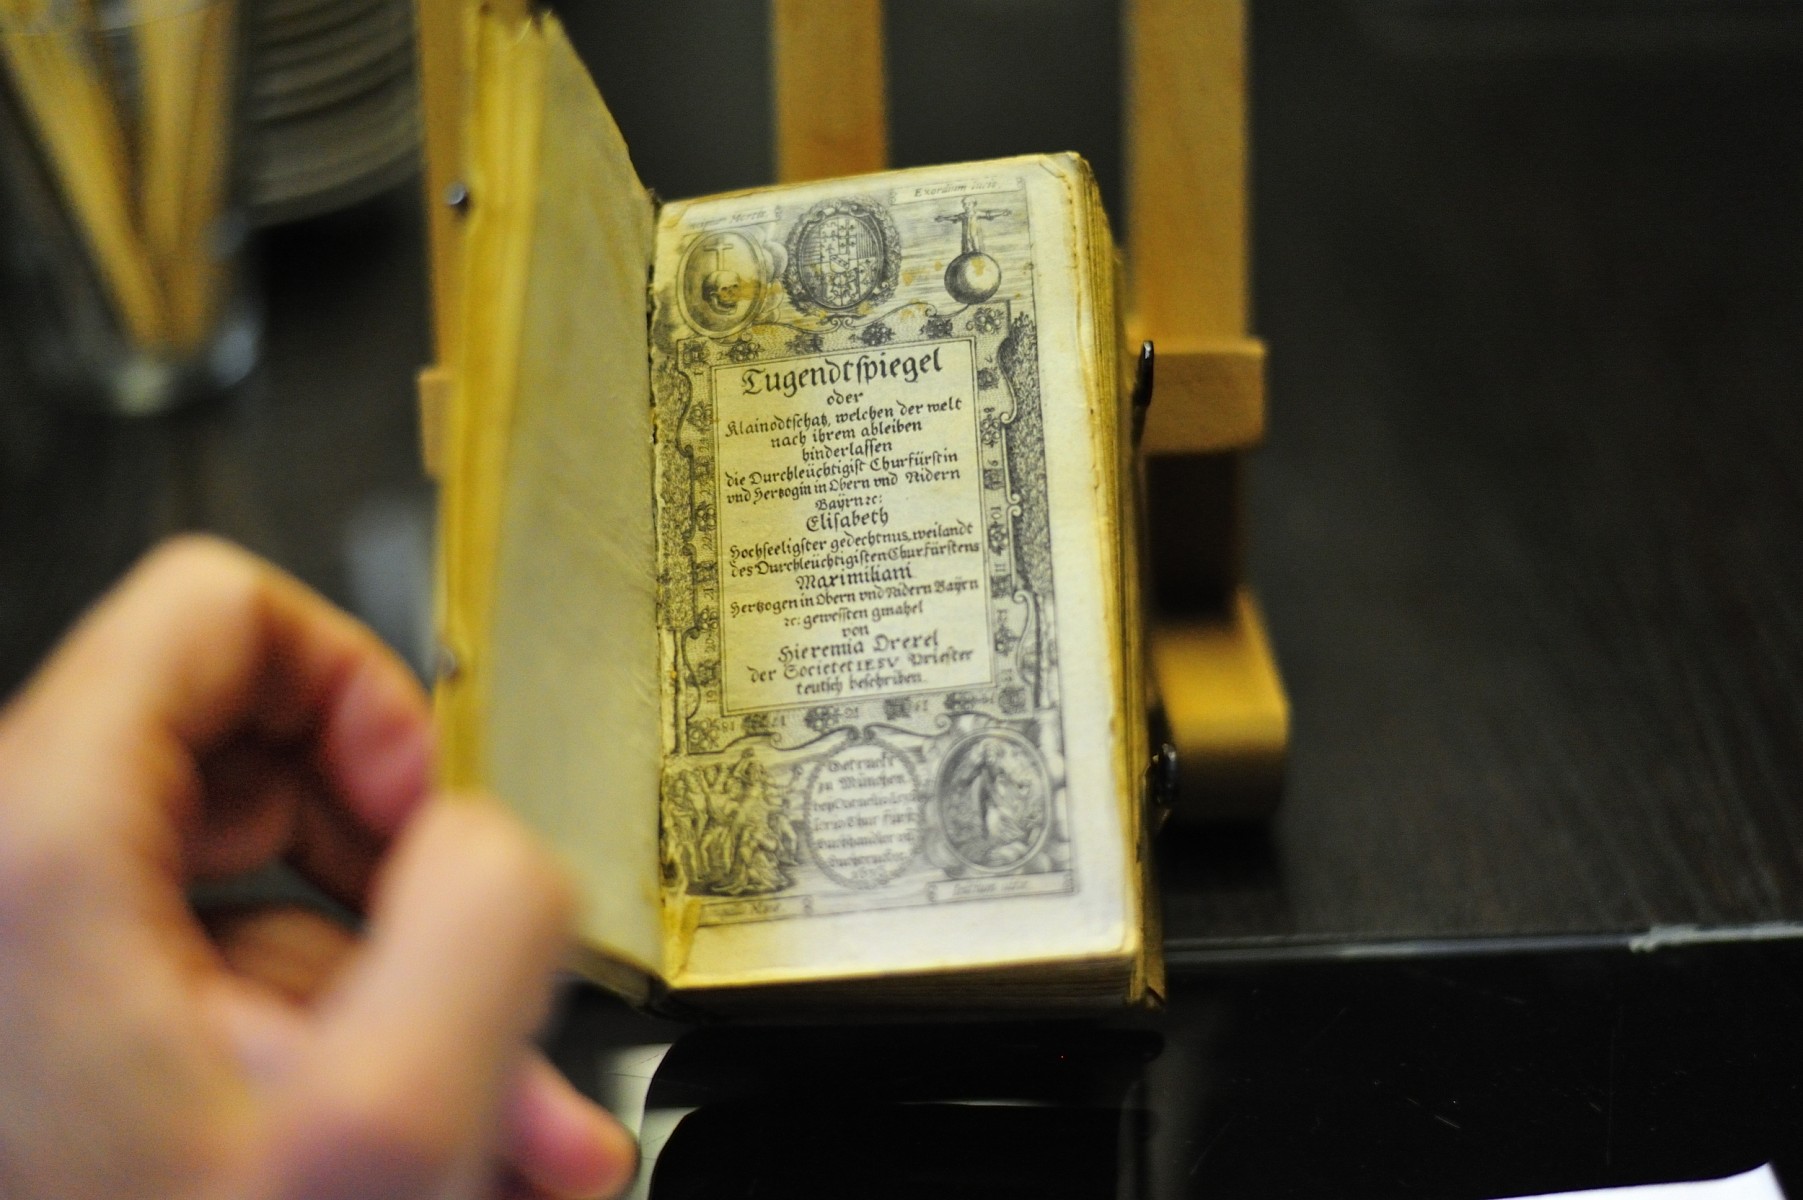 Exordium
Tugendtſpiegel
oder
Klainodtſchatz, welchen der welt
nach ihrem ableiben
hinderlaſſen
die Durchleüchtigiſt Churfürſtin
vnd Hertzogin in Obern vnd Nidern
Bayrn ꝛc:
Eliſabeth
Hochſeeligſter gedechtnus, weilandt
des Durchleüchtigiſten Churfürſtens
Maximiliani
Hertzogen in Obern vnd Nidern Bayrn
ꝛc: geweſten gmahel
von
Hieremia Drexel
der Societet IESV Prieſter
teutſch beſchriben.
Getruckt
zu München